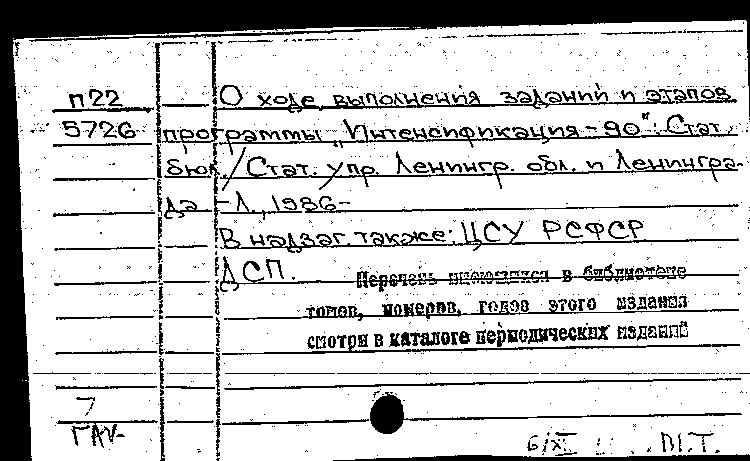 п22 О ходе выполнения заданий и этапов
5726 программы „Интенсификация-90": Стат.
бюл./Стат. упр. Ленингр. обл. и Ленингра-
да -Л., 1986-
В надзаг. также: ЦСУ РСФСР
ДСП.
Перечень имеющихся в библиотеке
томов, номеров, годов этого издания
смотри в каталоге периодических изданий
7
ГАУ-
6/XI